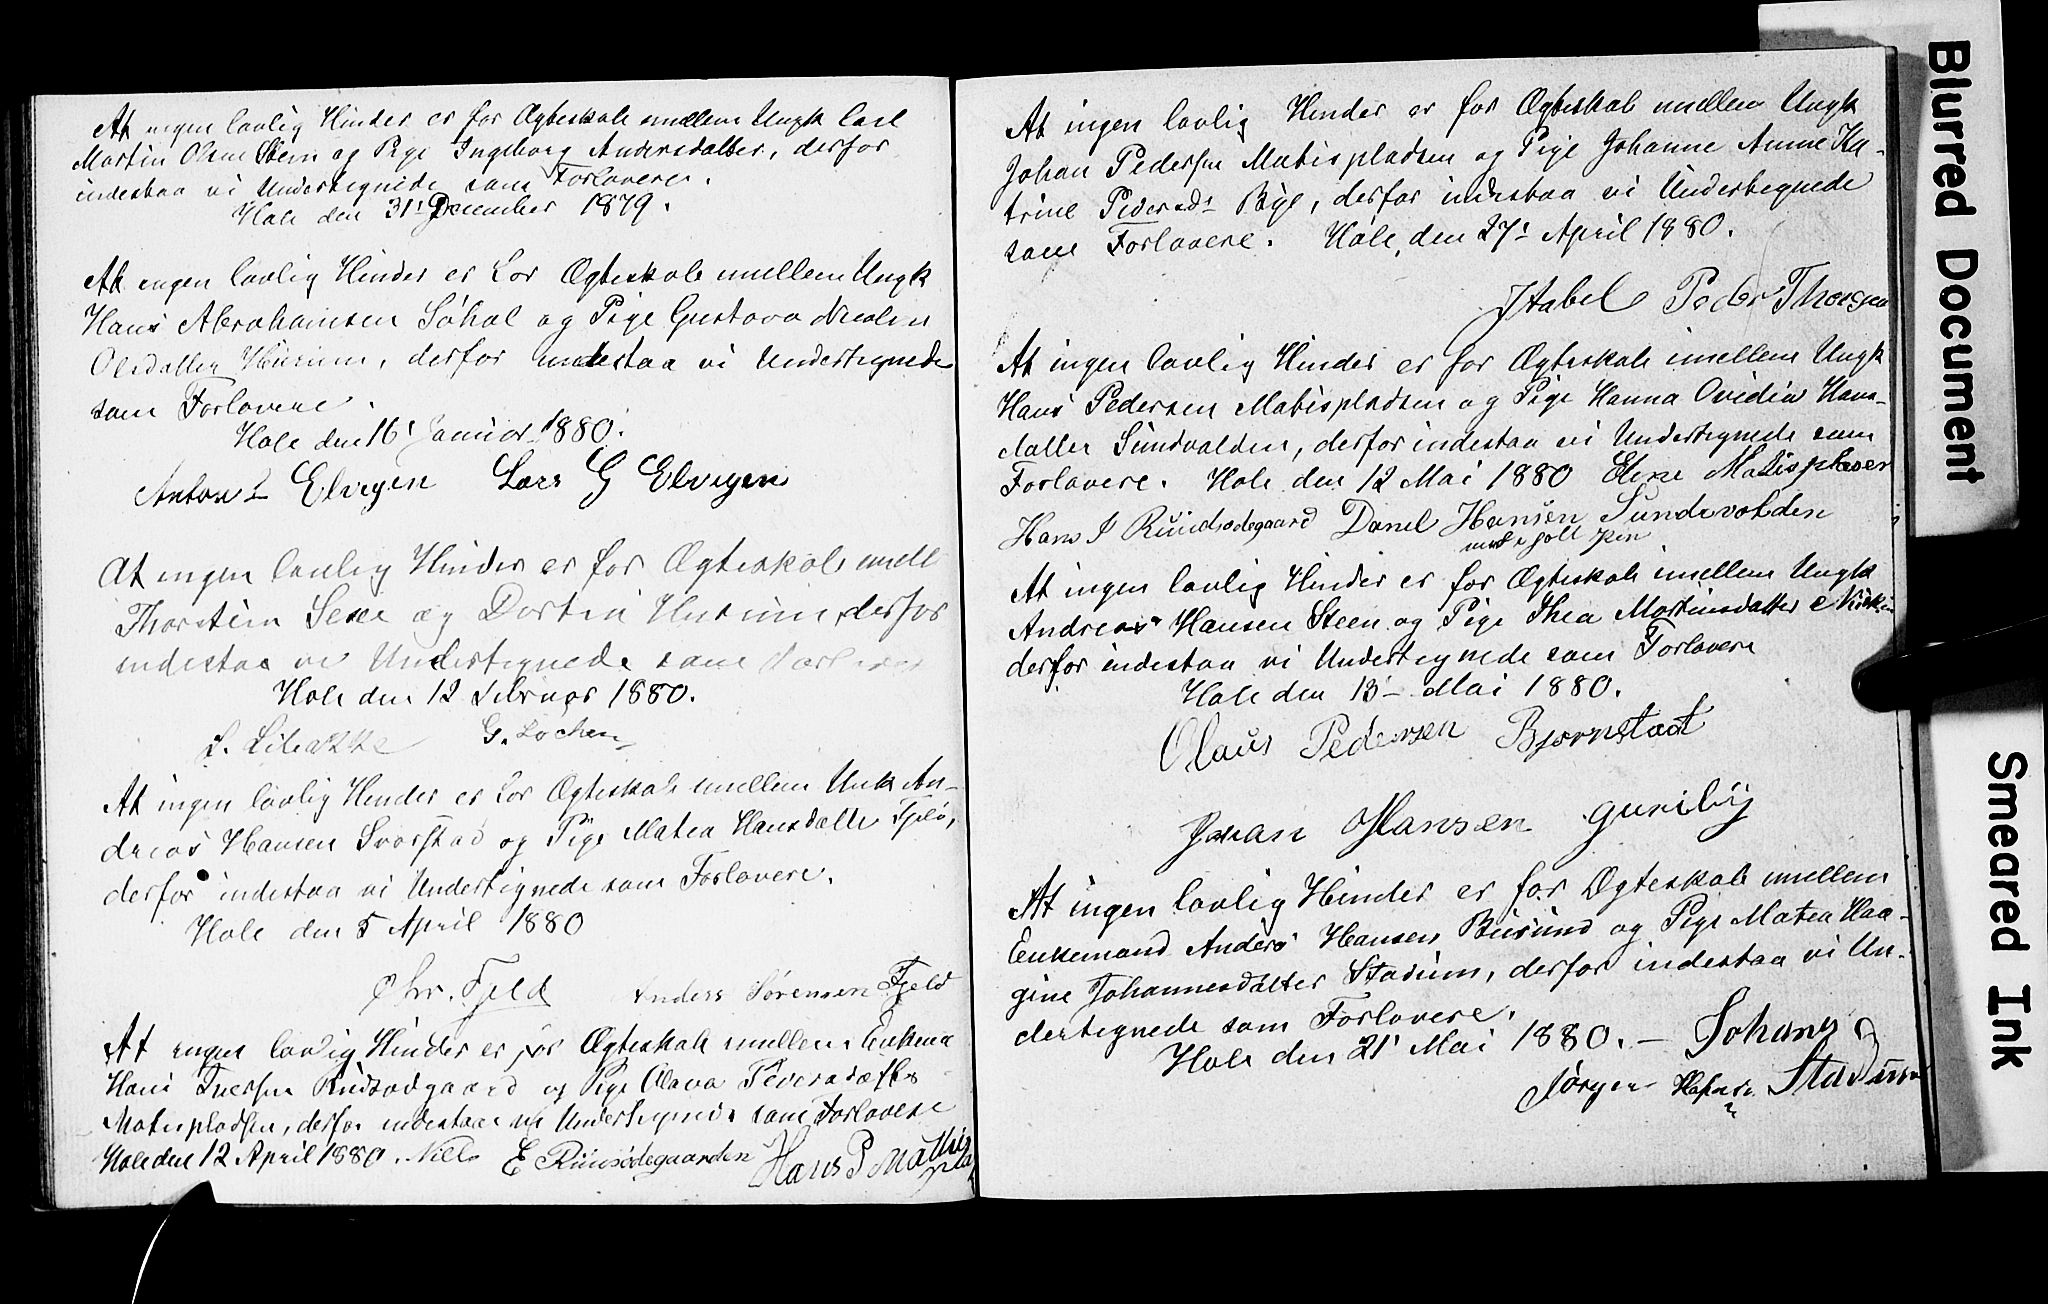 At ingen lovlig Hinder er for Ægteskab imellem Ungk Carl
Martin Olsen Steen og Pige Ingeborg Andersdatter, derfor
indestaa vi Undertegnede som Forlovere.
Hole den 31' December 1879.
At ingen lovlig Hinder er for Ægteskab imellem Ungk
Hans Abrahamsen Søhol og Pige Gustava Nicoline
Olsdatter Hurum, derfor indestaa vi Undertegnede
som Forlovere.
Hole den 16' Januar 1880.
Anton L Elvigen Lars G Elvigen
At ingen lovlig Hinder er for Ægteskab imell
Thorstein Sexe og Dortea Hurum, derfor
indestaa vi Undertegnede som Forlovere
Hole den 12 Februar 1880.
G. Løchen
At ingen lovlig Hinder er for Ægteskab imellem Unk An-
dreas Hansen Svarstad og Pige Matea Hansdatte Fjeld,
derfor indestaa vi Undertignede som Forlovere.
Hole den 5 April 1880
Chr. Fjeld Anders Sørensen Fjeld
At ingen lovlig Hinder er for Ægteskab imellem Enkema
Hans Iversen Rudsødgaard og Pige Olava Pedersdatter
Matispladsen, derfor indestaa vi Undertegnede som Forlovere
Hole den 12 April 1880. Nils E Ruudsødegaarden Hans P Mathis
pla
At ingen lovlig Hinder er for Ægteskab imellem Ungk
Johan Pedersen Matispladsen og Pige Johanne Anne Ka-
trine Pedersd- Bye, derfor indestaa vi Undertegnede
som Forlovere. Hole, den 27' April 1880.
Peder Thorsen
At ingen lovlig Hinder er for Ægteskab imellem Ungk
Hans Pedersen Matispladsen og Pige Hanna Ovidia Hans-
datter Sundvolden, derfor indestaa vi Undertegnede som
Forlovere. Hole den 12 Mai 1880
Hans I Ruudsødegaard Danel Hansen Sundvolden
med i holt pen
At ingen lovlig Hinder er for Ægteskab imellem Ungk
Andreas Hansen Steen og Pige Thea Martinsdatter
derfor indestaa vi Undertegnede som Forlovere
Hole den 13- Mai 1880.
Olaus Pedersen Bjørnstad
Johan Hansen Gurilby
At ingen lovlig Hinder er for Ægteskab imellem
Enkemand Anders Hansen Busund og Pige Matea Haa-
gine Johannesdatter Stadum, derfor indestaa vi Un-
dertegnede som Forlovere.
Hole den 21' Mai 1880. - Johans
Jørgen Stadum
Blurred Document
Smeared Ink